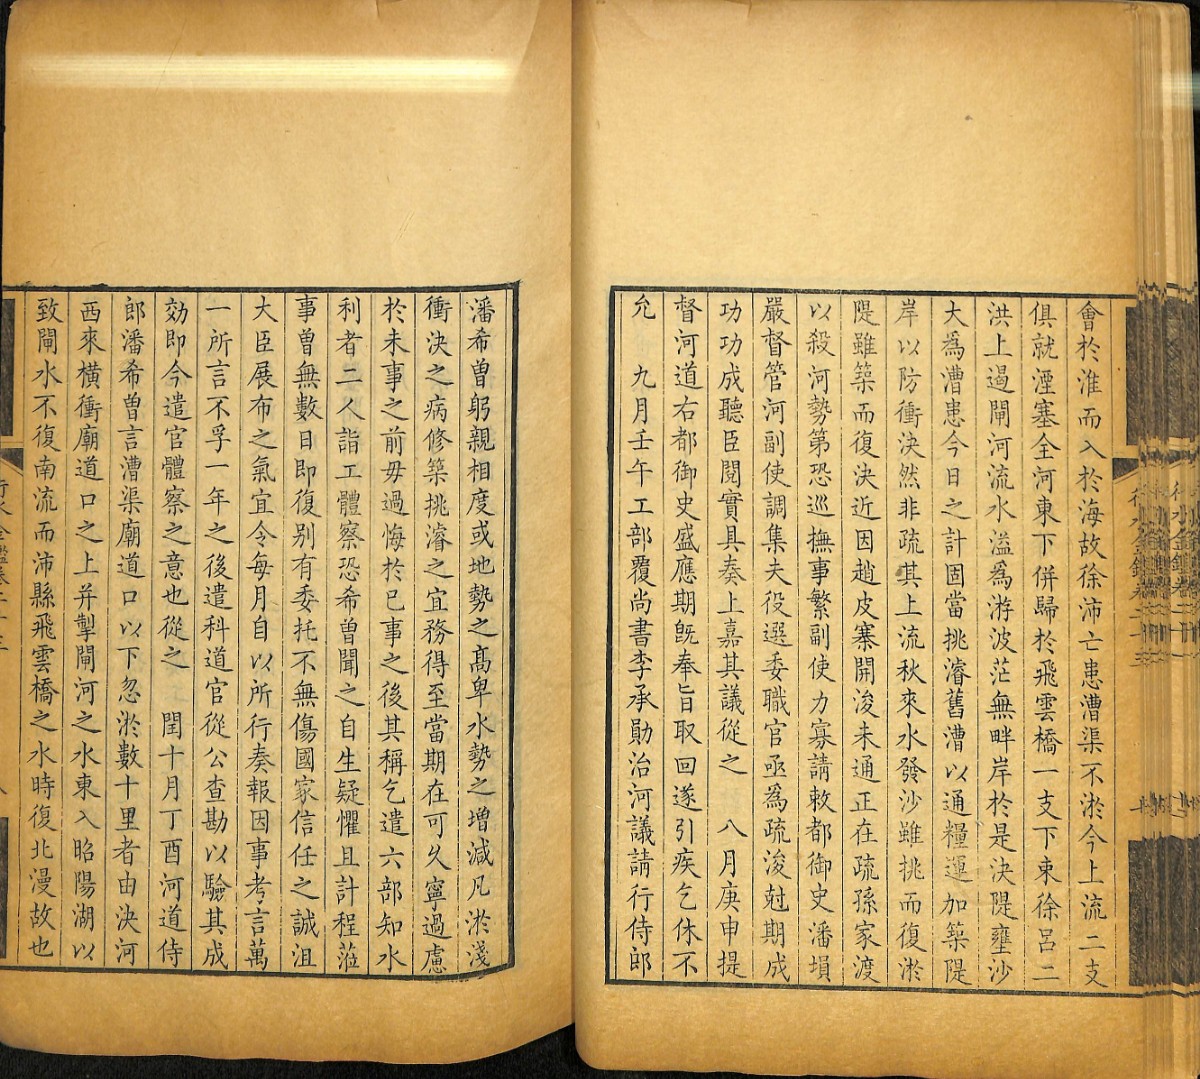 會於淮而入於海故徐沛亡患漕渠不淤今上流二支
俱就湮塞全河東下併歸於飛雲橋一支下東徐呂二
洪上遏閘河流水溢為游波茫無畔岸於是決隄壅沙
大為漕患今日之計固當挑濬舊漕以通糧運加築隄
岸以防衝決然非疏其上流秋來水發沙雖挑而復淤
隄雖築而復決近因趙皮寨開浚未通正在疏孫家渡
以殺河勢第恐巡撫事繁副使力寡請敕都御史潘塤
嚴督管河副使調集夫役選委職官亟為疏浚尅期成
功功成聽臣閱實具奏上嘉其議從之　八月庚申提
督河道右都御史盛應期既奉旨取回遂引疾乞休不
允　九月壬午工部覆尚書李承勛治河議請行侍郎
潘希曾躬親相度或地勢之高卑水勢之增減凡淤淺
衝決之病修築挑濬之宜務得至當期在可久寧過慮
於未事之前毋過悔於已事之後其稱乞遣六部知水
利者二人詣工體察恐希曾聞之自生疑懼且計程蒞
事曾無數日即復別有委托不無傷國家信任之誠沮
大臣展布之氣宜令每月自以所行奏報因事考言萬
一所言不孚一年之後遣科道官從公查勘以驗其成
効即今遣官體察之意也從之　閏十月丁酉河道侍
郎潘希曾言漕渠廟道口以下忽淤數十里者由決河
西來橫衝廟道口之上并掣閘河之水東入昭陽湖以
致閘水不復南流而沛縣飛雲橋之水時復北漫故也